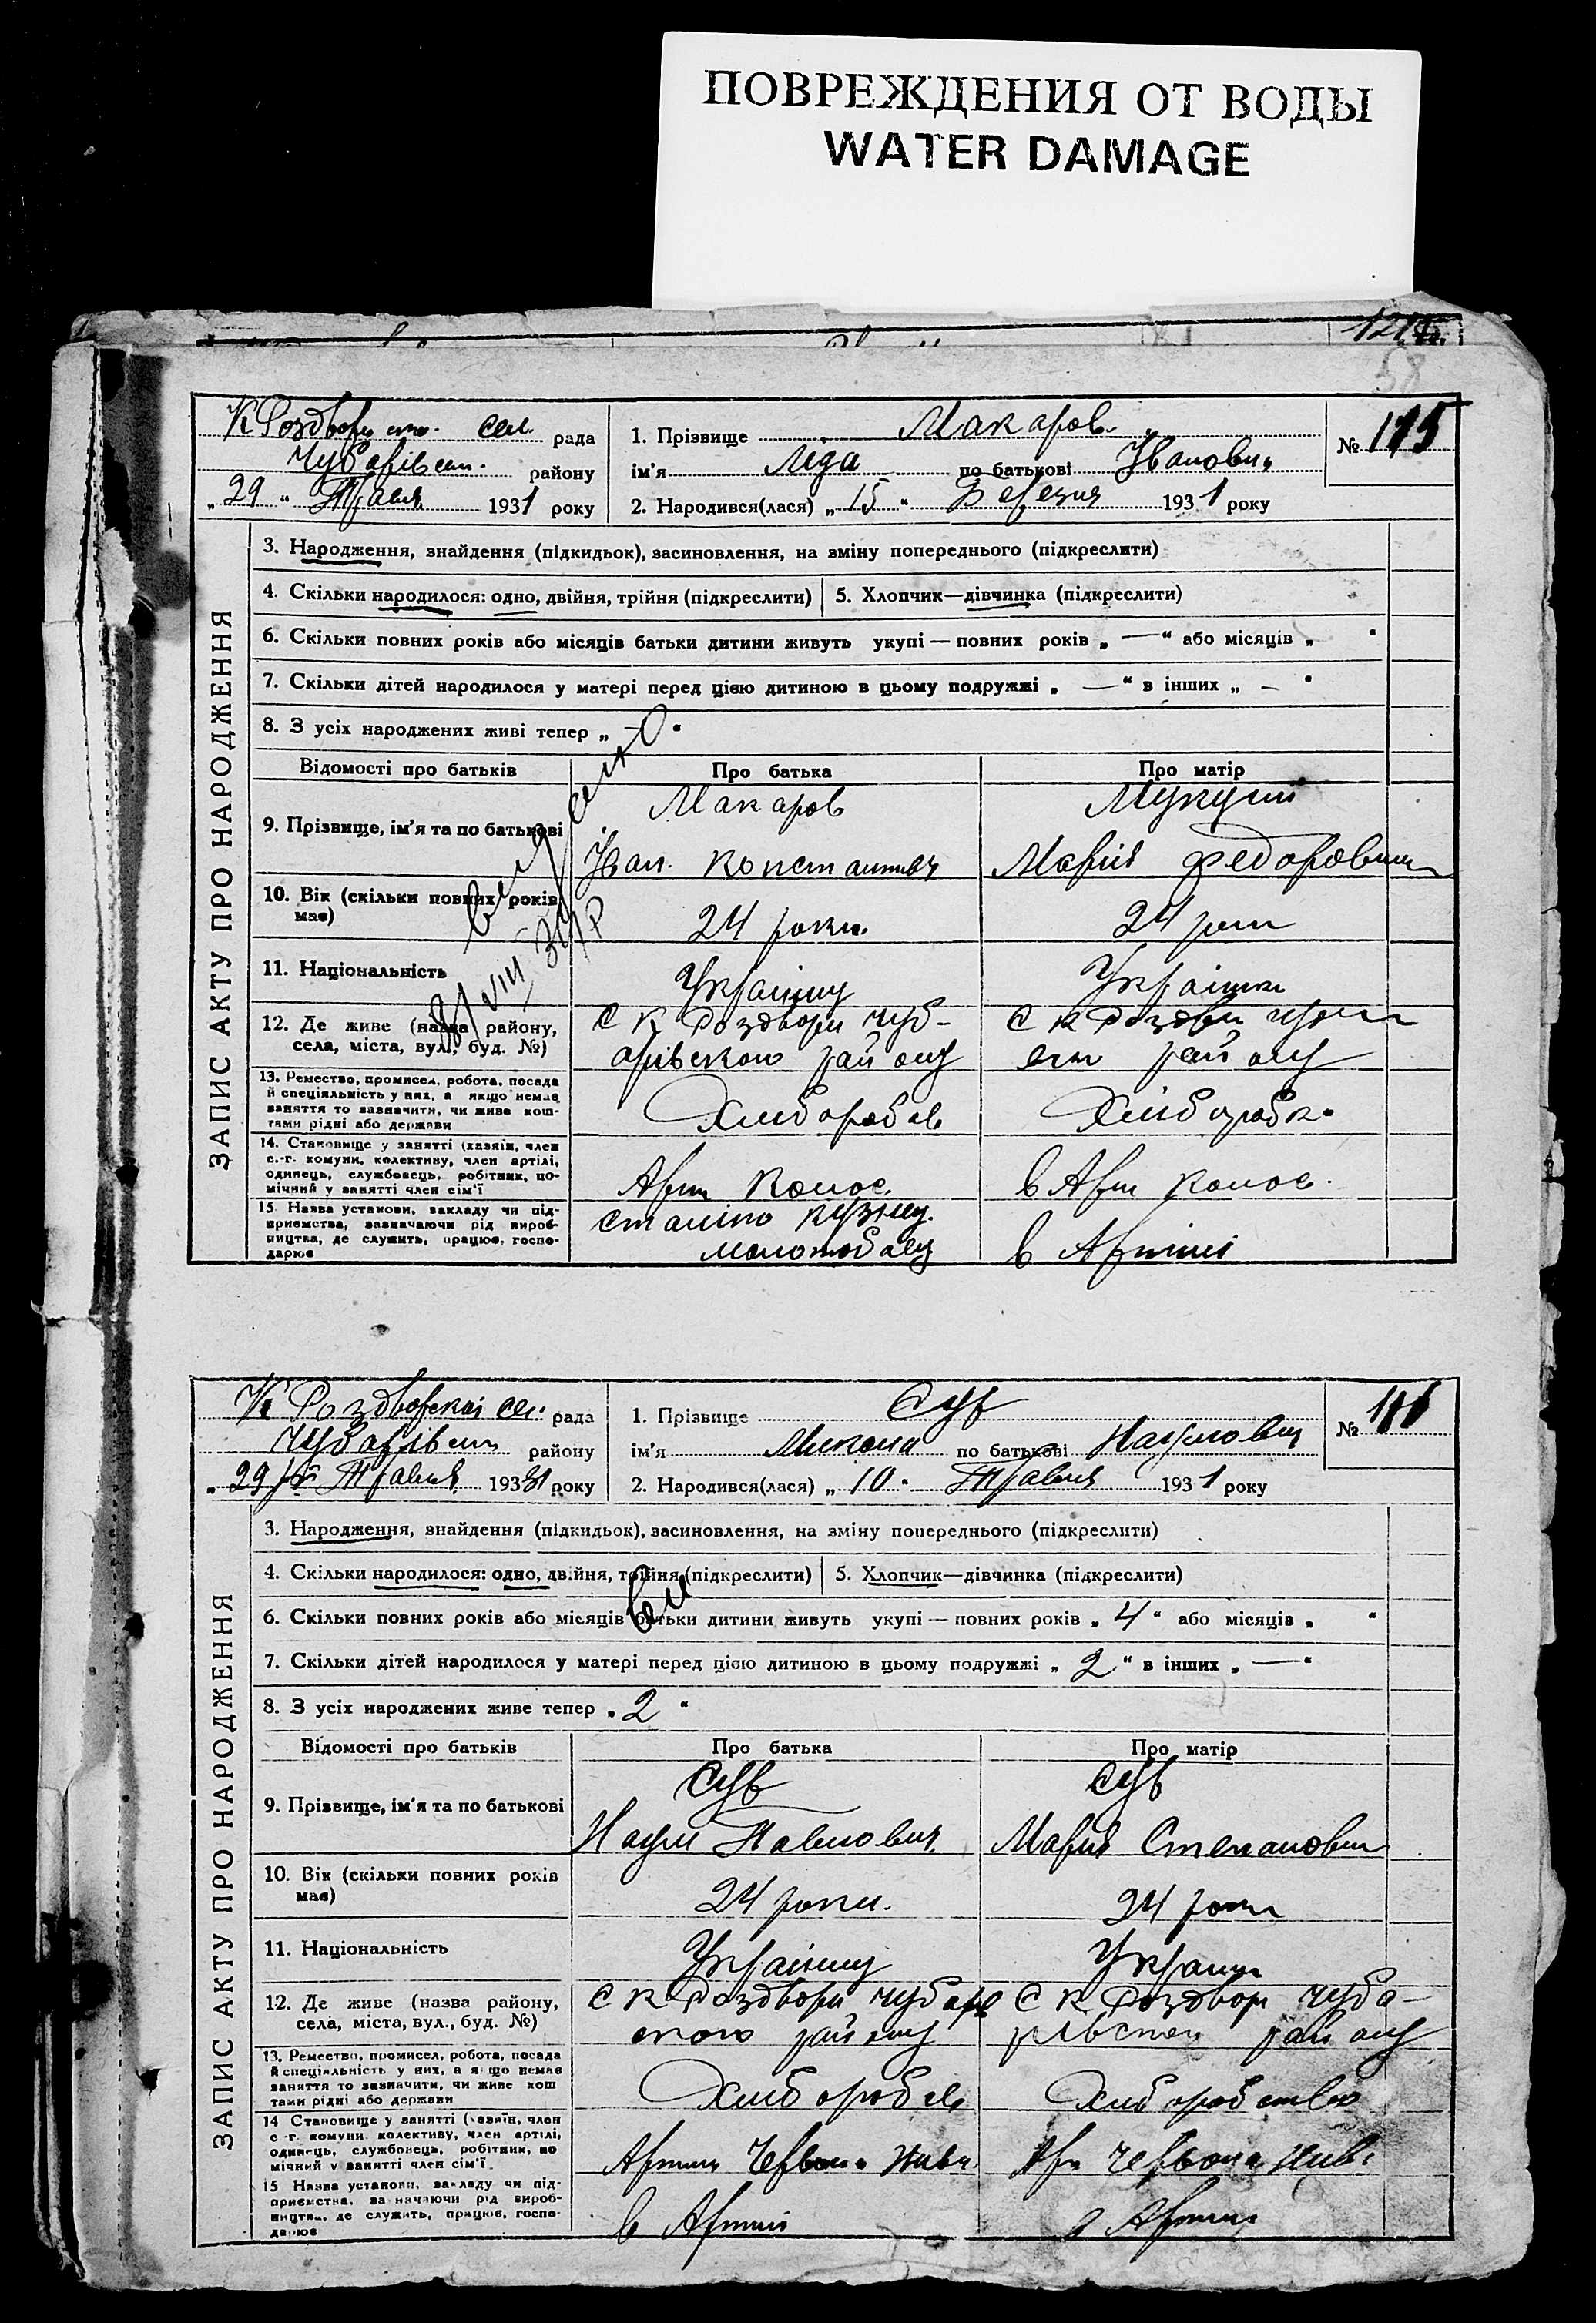 ПОВРЕЖДЕНИЯ ОТ ВОДЫ
WATER DAMAGE
58
К Роздорсько. сел. рада
Чубарівськ. району
„29“ Травня 1931 року
1. Прізвище Макаров.
ім'я Ліда по батькові Іванови
2. Народився(лася) „15“ Березня 1931 року
№ 115
ЗАПИС АКТУ ПРО НАРОДЖЕННЯ
3. Народження, знайдення (підкидьок), засиновлення, на зміну попереднього (підкреслити)
4. Скільки народилося: одно, двійня, трійня (підкреслити)
5. Хлопчик—дівчинка (підкреслити)
6. Скільки повних років або місяців батьки дитини живуть укупі — повних років „ — “ або місяців „ “
7. Скільки дітей народилося у матері перед цією дитиною в цьому подружжі „ — “ в інших „ – “
8. З усіх народжених живі тепер „ “
Відомості про батьків Про батька Про матір
9. Прізвище, ім'я та по батькові
Макаров
Іван.
Марія Федоровни
10. Вік (скільки повних років має)
24 роки.
24 роки
11. Національність
Українец
Українка
12. Де живе (назва району, села, міста, вул., буд. №)
с К Роздори Чуб-
арівского району
с К Роздори
району
13. Ремество, промисел, робота, посада
й спеціяльність у них, а якщо немає
заняття то зазначити, чи живе кош-
тами рідні або держави
Хлібороб
14. Становище у занятті (хазяїн, член
с.-г. комуни, колективу, член артілі,
одинець, службовець, робітник, по-
мічний у занятті член сім'ї
15. Назва установи, закладу чи під-
приємства, зазначаючи рід вироб-
ництва, де служить, працює, госпо-
дарює
в Артілі
К Роздорской сел. рада
Чубарівськ району
„29“ Травня 1931 року
1. Прізвище Сув
ім'я Микола по батькові Наумович
2. Народився(лася) „10“ Травня 1931 року
№ 116
ЗАПИС АКТУ ПРО НАРОДЖЕННЯ
3. Народження, знайдення (підкидьок), засиновлення, на зміну попереднього (підкреслити)
4. Скільки народилося: одно, двійня, трійня (підкреслити)
5. Хлопчик—дівчинка (підкреслити)
6. Скільки повних років або місяців батьки дитини живуть укупі — повних років „ 4 “ або місяців „ “
7. Скільки дітей народилося у матері перед цією дитиною в цьому подружжі „ 2 “ в інших „ — “
8. З усіх народжених живе тепер „ 2 “
Відомості про батьків Про батька Про матір
9. Прізвище, ім'я та по батькові
Сув
Наум Павлович
Сув
Марія Степановн
10. Вік (скільки повних років має)
24 роки.
24 роки
11. Національність
Українец
12. Де живе (назва району, села, міста, вул., буд. №)
с К Роздори Чубарів
ского району
с К Роздори Чуба-
району
13. Ремество, промисел, робота, посада
й спеціяльність у них, а якщо немає
заняття то зазначити, чи живе кош
тами рідні або держави
Хлібороб
Хліборобство
14 Становище у занятті (хазяїн, член
с-г. комуни колективу, член артілі,
одинець, службовець, робітник, по
мічний у занятті член сім'ї
Артиль Червона Нива
Арт Червона Нива
15 Назва установи, закладу чи під-
приємства, зазначаючи рід вироб-
ництва, де служить, працює, госпо-
дарює
в Артілі
в Артілі